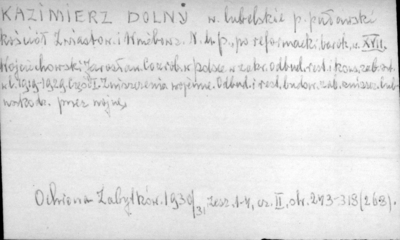 KAZIMIERZ DOLNY w. lubelskie p. puławski
kościół Zwiastow. i Wniebowz. N.M.P., po reformacki, barok, w. XVII.
Wojciechowski Jarosław. Co zrob. w Polsce w zakr. Odbud. rest. i kons. zab. 
w l. 1919-1929. Część I. Zniszczenia wojenne. Odbud. i rest. budow. zab. zniszcz. lub
uszkodz. przez wojnę.
Ochrona Zabytków. 1930/31, zesz. 1-4, cz. II, str. 243-318 (268).